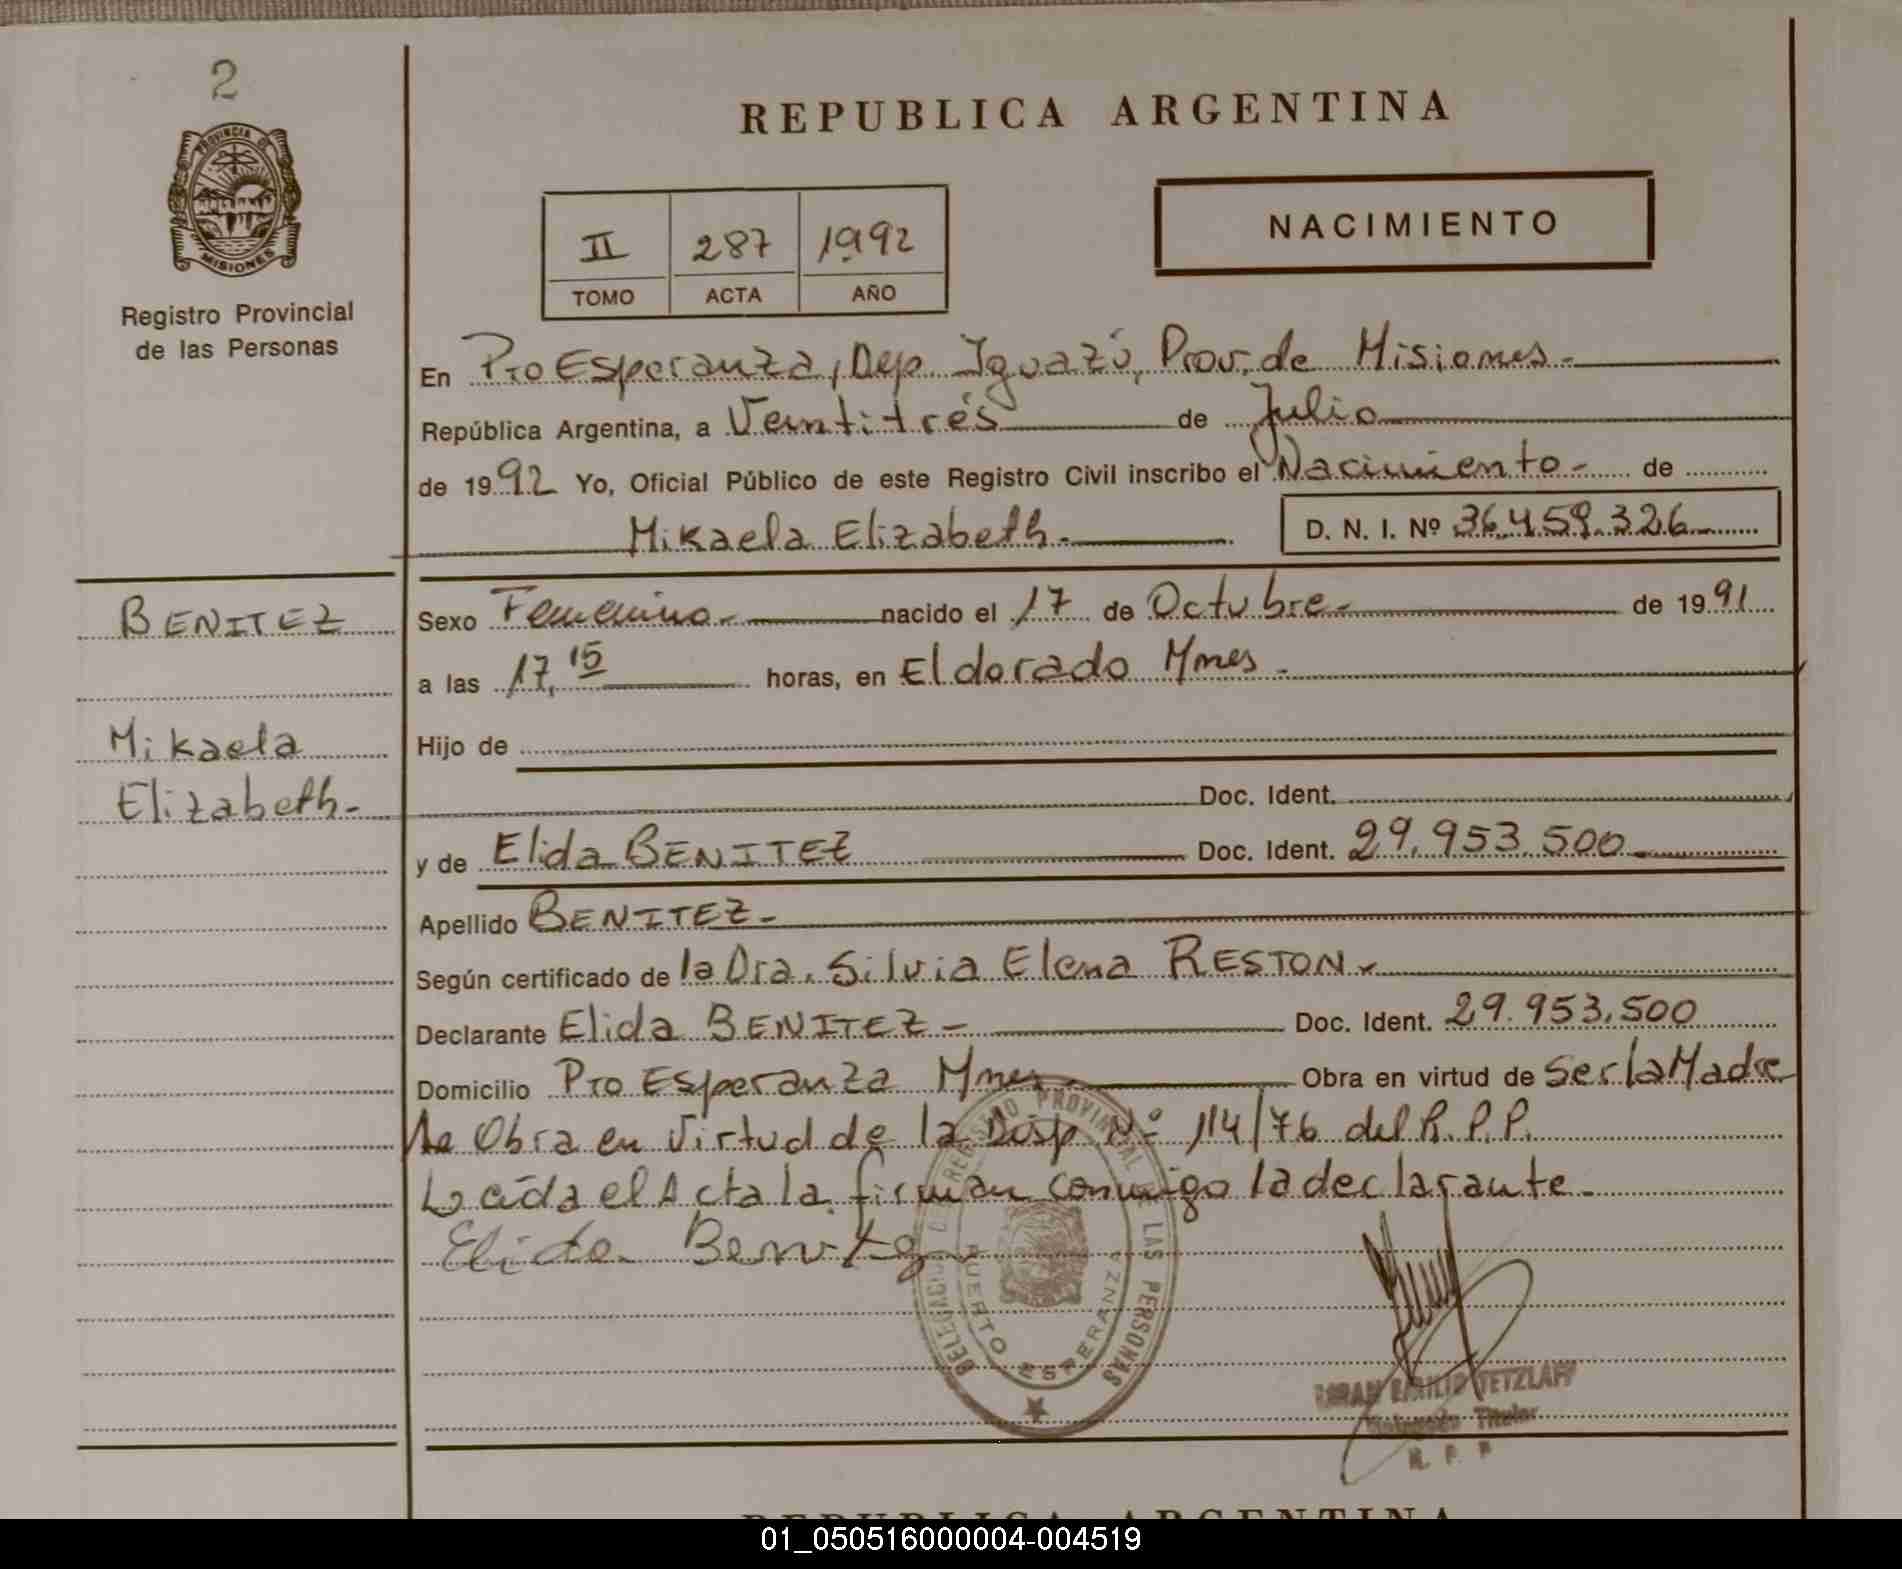 2
PROVINCIA DE
MISIONES
Registro Provincial
de las Personas
REPUBLICA ARGENTINA
II 287 1992
TOMO ACTA AÑO
NACIMIENTO
En Pto Esperanza, Dep. Iguazú, Prov. de Misiones.-
República Argentina, a Veintitrés de Julio
de 1992 Yo, Oficial Público de este Registro Civil inscribo el Nacimiento- de
Mikaela Elizabeth.- D. N. I. Nº 36.459.326
BENITEZ
Mikaela
Elizabeth-
Sexo Femenino.- nacido el 17 de Octubre.- de 1991
a las 17,15 horas, en Eldorado Mnes.-
Hijo de
Doc. Ident.
y de Elida BENITEZ Doc. Ident. 29.953.500
Apellido BENITEZ-
Según certificado de la Dra. Silvia Elena RESTON.
Declarante Elida BENITEZ- Doc. Ident. 29.953.500
Domicilio Pto Esperanza Mnes Obra en virtud de Ser la Madre
Se Obra en Virtud de la Disp Nº 114/76 del R.P.P.
Leída el Acta la firman conmigo la declarante.
Elida Benitez
DELEGACION DEL REGISTRO PROVINCIAL DE LAS PERSONAS
PUERTO ESPERANZA
EMILIO TETZLAFF
Delegado Titular
R. P. P.
REPUBLICA ARGENTINA
01_050516000004-004519